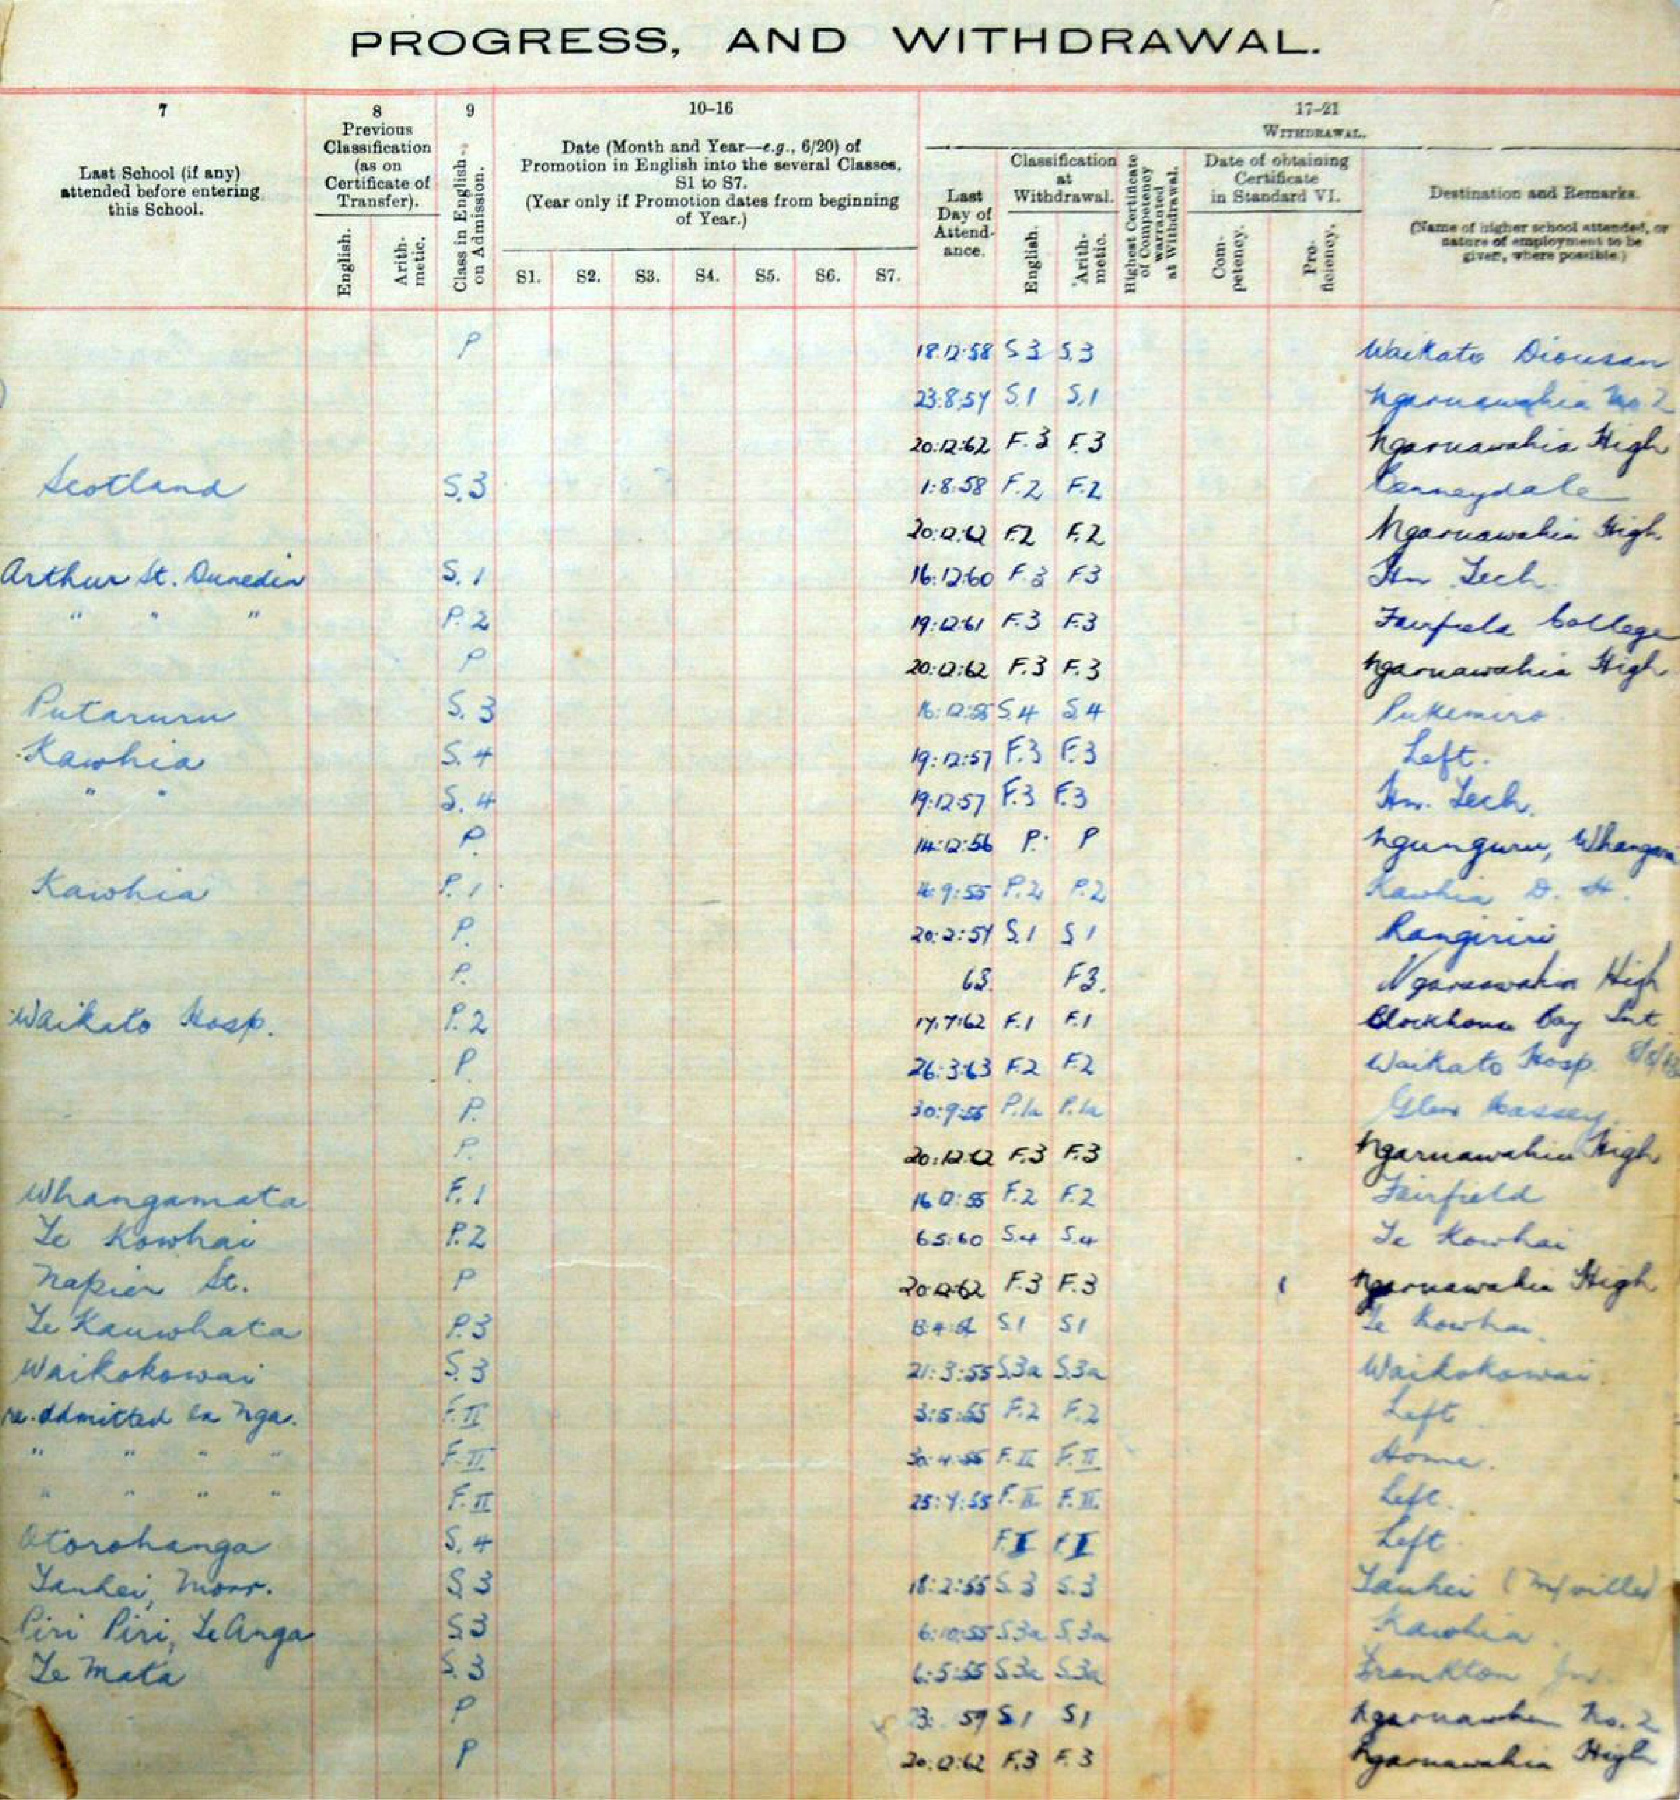 PROGRESS, AND WITHDRAWAL.
7 8 9 10–16 17–21
Last School (if any) attended before entering this School.
Previous Classification (as on Certificate of Transfer).
English. Arith-metic.
Class in English on Admission.
Date (Month and Year—e.g., 6/20) of Promotion in English into the several Classes, S1 to S7.
(Year only if Promotion dates from beginning of Year.)
S1. S2. S3. S4. S5. S6. S7.
WITHDRAWAL.
Last Day of Attend-ance.
Classification at Withdrawal.
English. Arith-metic.
Highest Certificate of Competency warranted at Withdrawal.
Date of obtaining Certificate in Standard VI.
Com-petency. Pro-ficiency.
Destination and Remarks.
(Name of higher school attended, or nature of employment to be given, where possible.)
P 18:12:58 S3 S.3 Waikato Diocesan
S.1 S.1 Ngaruawahia No 2
20:12:62 F.3 F.3 Ngaruawahia High
Scotland S.3 1:8:58 F.2 F.2 Benneydale
F.2 F.2 Ngaruawahia High
Arthur St. Dunedin S.1 16:12:60 F.3 F3 Hm Tech.
" " " P.2 19:12:61 F.3 F.3 Fairfield College
P 20:12:62 F.3 F.3 Ngaruawahia High
Putaruru S.3 16:12:55 S.4 S.4 Pukemiro
Kawhia S.4 19:12:57 F.3 F.3 Left.
" " S.4 19:12:57 F.3 F.3 Hm. Tech.
P. 14:12:56 P. P Ngunguru,
Kawhia P.1 P.2 P.2 Kawhia D. H.
P. S.1 S1 Rangiriri
P. 63. F3. Ngaruawahia High
Waikato Hosp. P.2 F.1 F.1 Blockhouse Bay Int
P. 26:3:63 F.2 F.2 Waikato Hosp.
P. 30:9:55 P.1a P.1a Glen Massey
P. F.3 F.3 Ngaruawahia High
Whangamata F.1 16:12:55 F.2 F.2 Fairfield
Te Kowhai P.2 6:5:60 S.4 S.4 Te Kowhai
Napier St. P 20:12:62 F.3 F.3 Ngaruawahia High
Te Kauwhata P.3 S1 S1 Te Kowhai.
Waikokowai S.3 21:3:55 S.3a S.3a Waikokowai.
re-admitted ex Nga. F.II 3:5:55 F.2 F.2 Left
" " " " F.II F.II F.II Home.
" " " " F.II F.II F.II Left.
Otorohanga S.4 F.I F.I Left
Tauhei, Morr. S3 18:2:55 S.3 S.3 Tauhei (M/ville)
Piri Piri, Te Anga S3 6:10:55 S3a S.3a Kawhia.
Te Mata S.3 6:5:55 S3a S.3a Frankton Jn.
P 59 S1 S1 Ngaruawahia No. 2
P 20:12:62 F.3 F.3 Ngaruawahia High